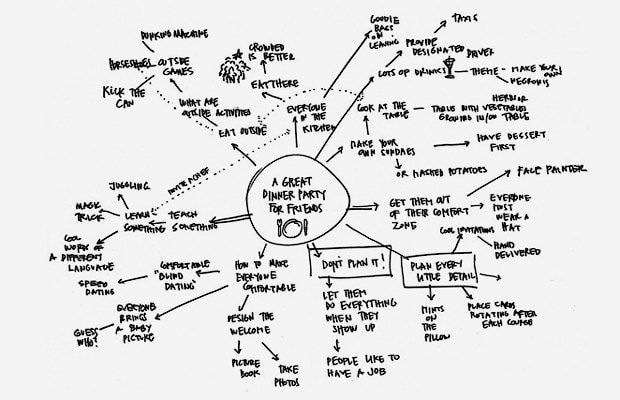 A GREAT
DINNER PARTY
FOR FRIENDS
DUNKING MACHINE
HORSESHOES
OUTSIDE
GAMES
KICK THE
CAN
WHAT ARE
OUTSIDE ACTIVITIES
EAT OUTSIDE
CROWDED
IS BETTER
EAT THERE
EVERYONE
IN THE
KITCHEN
GOODIE
BAGS
ON
LEAVING
TAXIS
PROVIDE
DESIGNATED DRIVER
LOTS OF DRINKS
THEME - MAKE YOUR
OWN
NEGRONIS
LOOK AT THE
TABLE
HERB OR
TABLE WITH VEGETABLES
GROWING IN/ON TABLE
MAKE YOUR
OWN SUNDAES
HAVE DESSERT
FIRST
OR MASHED POTATOES
FACE PAINTER
GET THEM OUT
OF THEIR COMFORT
ZONE
EVERYONE
MUST
WEAR A
HAT
COOL INVITATIONS
HAND
DELIVERED
PLAN EVERY
LITTLE DETAIL
MINTS
ON
THE
PILLOW
PLACE CARDS
ROTATING AFTER
EACH COURSE
DON'T PLAN IT!
LET THEM
DO EVERYTHING
WHEN THEY
SHOW UP
PEOPLE LIKE TO
HAVE A JOB
HOW TO MAKE
EVERYONE
COMFORTABLE
DESIGN THE
WELCOME
PICTURE
BOOK
TAKE
PHOTOS
COMFORTABLE
"BLIND
DATING"
SPEED
DATING
EVERYONE
BRINGS
A BABY
PICTURE
GUESS
WHO?
TEACH
SOMETHING
LEARN
SOMETHING
INVITE A CHEF
JUGGLING
MAGIC
TRICK
COOL
WORDS OF
A DIFFERENT
LANGUAGE